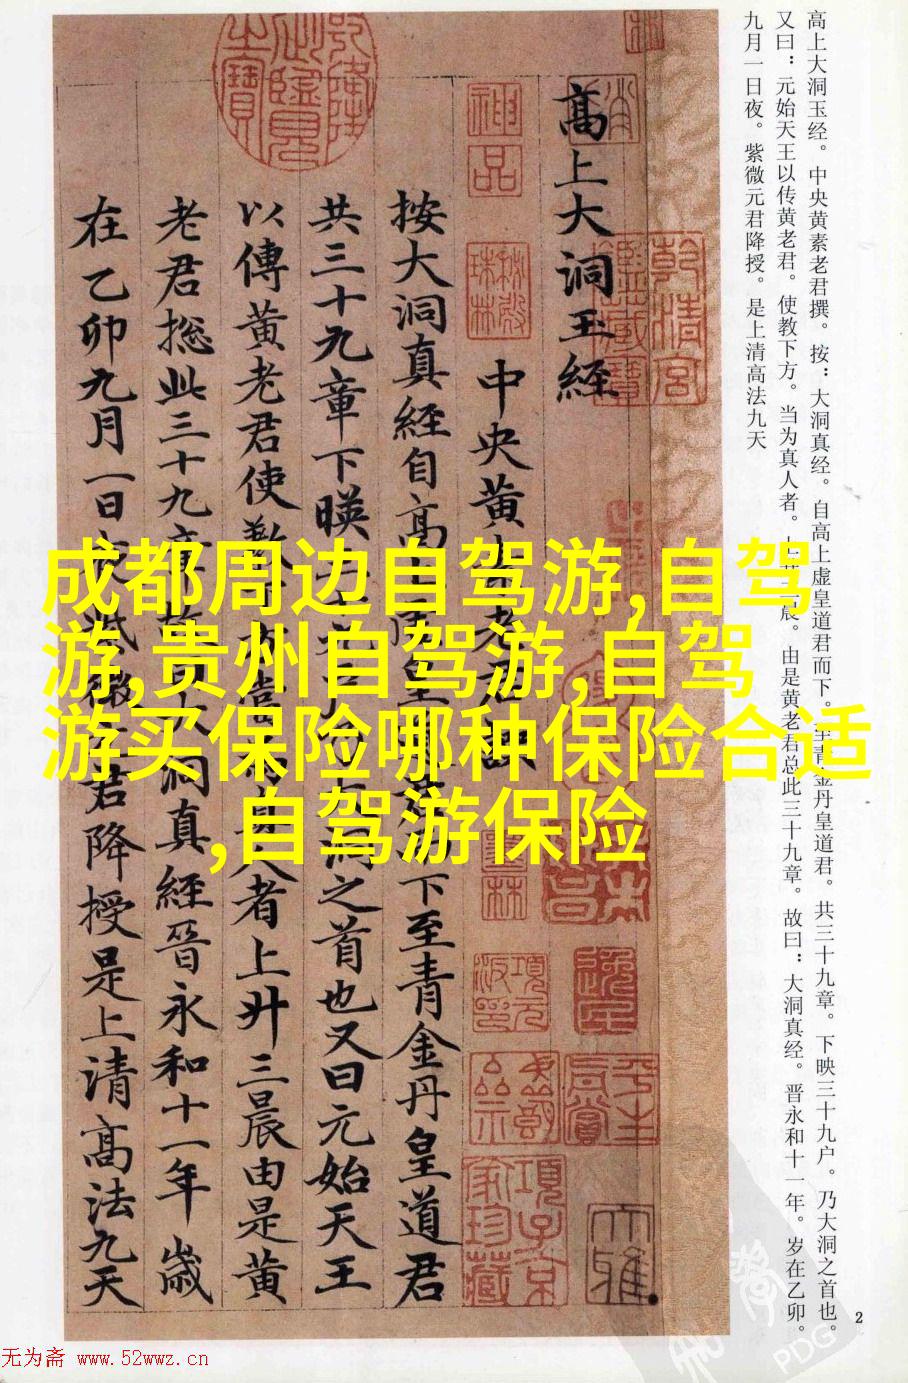 高上大洞玉经。中央黄素老君撰。按：大洞真经。自高上虚皇道君而下。至青金丹皇道君。共三十九章。下映三十九户。乃大洞之首也。
又曰：元始天王以传黄老君。使教下方。当为真人者。上升三晨。由是黄老君总此三十九章。故曰：大洞真经。晋永和十一年。岁在乙卯。
九月一日夜。紫微元君降授。是上清高法九天
高上大洞玉經
中央黄素老君
按大洞真經自高上虚皇下至青金丹皇道君
共三十九章下暎之首也又曰元始天王
以傳黄老君使教下方當者上升三晨由是黄
老君捴此三十九章故曰大洞真經晉永和十一年歲
在乙卯九月一日夜紫微元君降授是上清髙法九天
神品
乾清宮
成都周边自驾游,自驾
游,贵州自驾游,自驾
游买保险哪种保险合适
,自驾游保险
2
无为斋 www.52wwz.cn
PDG